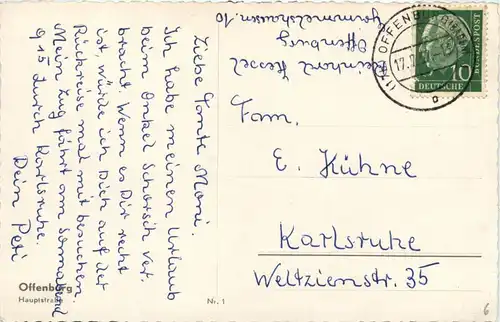 Liebe Tante Moni.
Ich habe meinen Urlaub
beim Onkel Schorsch ver-
bracht. Wenn es Dir recht
ist, würde ich Dich auf der
Rückreise mal mit besuchen.
Mein Zug fährt am Sonnabend
9 15 durch Karlsruhe.
Dein Peti
Offenburg
Hauptstraße
Nr. 1
Offenburg
OFFENBURG
17.
DEUTSCHE
BUNDESPOST
10
Fam.
E. Kühne
Karlsruhe
Weltzienstr. 35
6